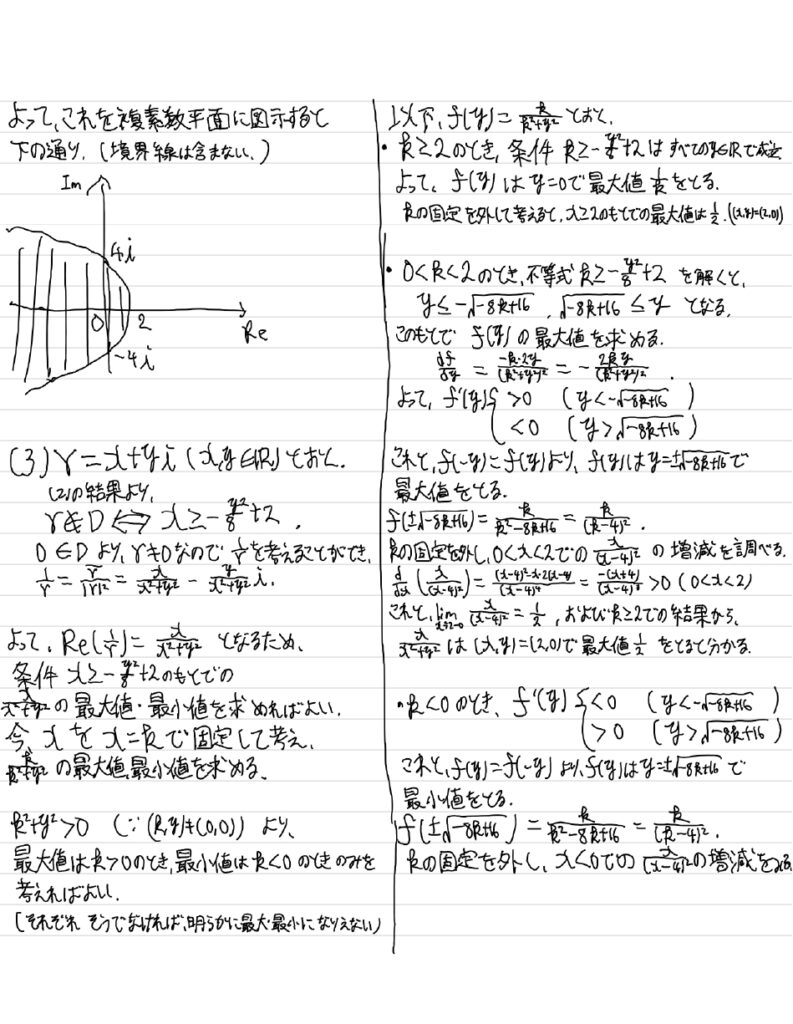 よって、これを複素数平面に図示すると
下の通り。(境界線は含まない。)
Im
4i
0
2
Re
-4i
(3) γ = x+yi (x,y∈ℝ)とおく。
(2)の結果より、
γ∉D ⇔ x ≥ -y²/8+2 。
0∈D より、γ≠0なので 1/γ を考えることができ、
1/γ = γ̄/|γ|² = x/(x²+y²) - y/(x²+y²) i.
よって、Re(1/γ) = x/(x²+y²) となるため、
条件 x≥-y²/8+2 のもとでの
x/(x²+y²) の最大値・最小値を求めればよい。
今、xを x=kで固定して考え、
k/(k²+y²) の最大値、最小値を求める。
k²+y²>0 (∵(k,y)≠(0,0)) より、
最大値はk>0のとき、最小値はk<0のときのみを
考えればよい.
(それぞれ そうでなければ、明らかに最大・最小になりえない)
以下、f(y) = k/(k²+y²) とおく。
・k≥2のとき、条件 k≥-y²/8+2は すべてのy∈ℝで成立
よって、f(y)はy=0で最大値 1/k をとる。
kの固定を外して考えると、x≥2のもとでの最大値は 1/2 .((x,y)=(2,0))
・0<k<2のとき、不等式 k≥-y²/8+2 を解くと、
y≤-√(-8k+16) , √(-8k+16) ≤y となる。
このもとで f(y) の最大値を求める。
df/dy = -k·2y/(k²+y²)² = - 2ky/(k²+y²)² .
よって、f'(y) { >0 (y<-√(-8k+16) )
<0 (y>√(-8k+16) )
これと、f(-y)=f(y)より、f(y)はy=±√(-8k+16) で
最大値をとる。
f(±√(-8k+16)) = k/(k²-8k+16) = k/(k-4)² .
kの固定を外し、0<x<2での x/(x-4)² の増減を調べる。
d/dx (x/(x-4)²) = ((x-4)²-x·2(x-4))/(x-4)⁴ = -(x+4)/(x-4)³ >0 (0<x<2)
これと、lim x/(x-4)² = 1/2 , およびk≥2での結果から、
x/(x²+y²) は (x,y)=(2,0)で最大値 1/2 をとると分かる。
・k<0 のとき、f'(y) { <0 (y<-√(-8k+16) )
>0 (y>√(-8k+16) )
これと、f(y)=f(-y) より、f(y)はy=±√(-8k+16) で
最小値をとる。
f(±√(-8k+16)) = k/(k²-8k+16) = k/(k-4)² .
kの固定を外し、x<0での x/(x-4)² の増減を